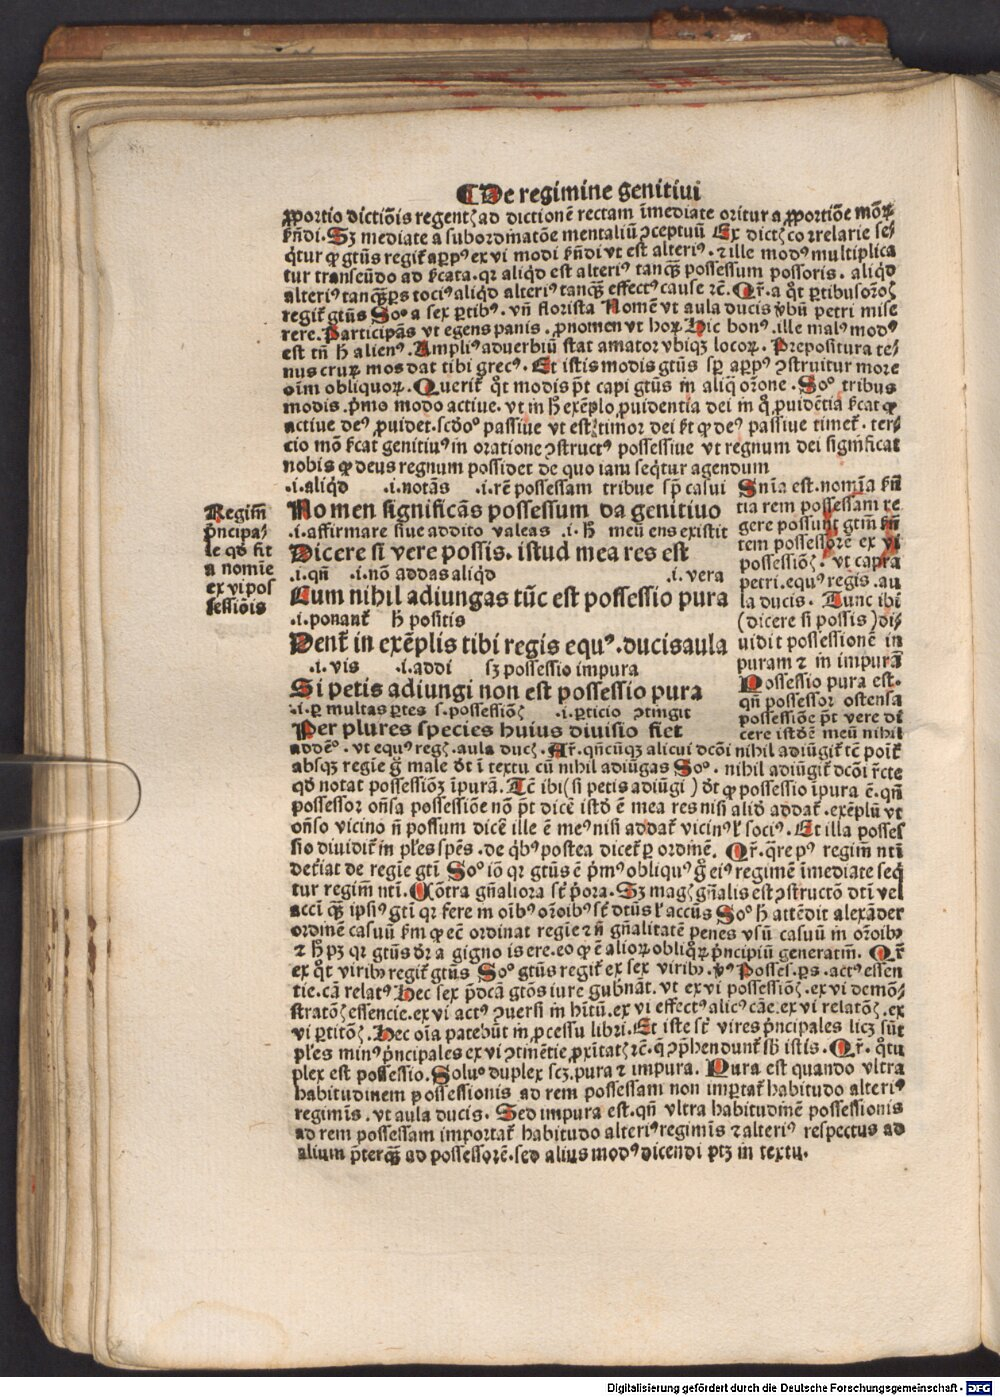 ¶De regimine genitiui
ꝓportio dictiõis regentꝭ ad dictionẽ rectam ĩmediate oritur a ꝓportiõe moꝝ
Sꝫ mediate a subordinatõe mentaliũ ꝯceptuũ Ex dictꝭ correlarie se⸗
tur transeũdo ad qꝛ aliqd est alteriꝰ tanꝙ̃ possessum possoris. aliqd
alteriꝰ tanꝙ̃ ps tociꝰ aliqd alteriꝰ tanꝙ̃ effectꝰ cause ꝛc̃.
gtũs Soꝰ a sex ptibꝰ. vñ florista Nomẽ vt aula ducis petri mise
rere. Participãs vt egens panis. ꝓnomen vt hoꝝ. Hic bonꝰ. ille malꝰ modꝰ
est tñ alienꝰ. Ampliꝰ aduerbiũ stat amator vbiqꝫ locoꝝ. Prepositura te⸗
nus cruꝝ mos dat tibi grecꝰ. Et istis modis gtũs ꝯstruitur more
oĩm obliquoꝝ. Querit̃ modis põt capi gtũs in aliq̃ orõne. Soꝰ tribus
modis. pmo modo actiue. vt in exẽplo ꝓuidentia dei in ꝓuidẽtia
actiue deꝰ ꝓuidet. scdoꝰ passiue vt est timor dei deꝰ passiue timet̃. ter⸗
cio mõ genitiuꝰ in oratione ꝯstructꝰ possessiue vt regnum dei significat
nobis ꝙ deus regnum possidet de quo iam seqtur agendum
.i. aliqd .i. notãs .i. rẽ possessam tribue casui
Regim̃
pncipa⸗
le qd fit
a nomĩe
ex vi pos
sessiõis
Nomen significãs possessum da genitiuo
.i. affirmare siue addito valeas .i. meũ ens existit
Dicere si vere possis. istud mea res est
.i. qñ .i. nõ addas aliqd .i. vera
Cum nihil adiungas tũc est possessio pura
.i. ponant̃ positis
Dent̃ in exẽplis tibi regis equꝰ. ducis aula
.i. vis .i. addi sꝫ possessio impura
Si petis adiungi non est possessio pura
.i. p multas ptes s. possessiõꝭ .i. pticio ꝯtingit
Per plures species huius diuisio fiet
Snĩa est. nomĩa
tia rem possessam re
gere possunt gtm̃
tem possessorẽ ex vi
possessiõꝭ. vt capra
petri. equꝰ regis. au
la ducis. Tunc ibi
(dicere si possis) di⸗
uidit possessionẽ in
puram ⁊ in impurã
Possessio pura est.
qñ possessor ostensa
possessiõe põt vere di
cere istdẽ meũ nihil
addẽꝰ. vt equꝰ regꝭ. aula ducꝭ. Ar̃. qñcũqꝫ alicui dcõi nihil adiũgit̃
absqꝫ regĩe male ĩ textu cũ nihil adiũgas Soꝰ. nihil adiũgit̃ dcõi
qd notat possessiõꝫ ĩpurã. ibi (si petis adiũgi) ꝙ possessio ĩpura ẽ. qñ
possessor oñsa possessiõe nõ põt dicẽ istd ẽ mea res nisi aliqd addat̃. exẽplũ vt
oñso vicino ñ possum dicẽ ille ẽ meꝰ nisi addat̃ vicinꝰ sociꝰ. Et illa posses
sio diuidit̃ in ples spẽs. de qbꝰ postea dicet̃ p ordinẽ. Qr̃. regim̃
de regĩe gtĩ Soꝰ qꝛ gtũs ẽ pmꝰ obliquꝰ eiꝰ regimẽ ĩmediate seq
tur regim̃ Cõtra gñaliora st̃ pora. Sꝫ magꝭ gñalis est ꝯstructõ dtĩ vel
accĩ ꝙ̃ ipsiꝰ gtĩ qꝛ fere in oĩbꝰ orõibꝰ st̃ dtũs accũs Soꝰ attẽdit alexãder
ordinẽ casuũ ordinat regĩe ⁊ ñ gñalitatẽ penes vsũ casuũ in orõibꝰ
⁊ pꝫ qꝛ gtũs a gigno is ere. eo ꝙ ẽ alioꝝ obliqꝝ pncipiũ generatim̃. Qr̃
ex viribꝰ regit̃ gtũs Soꝰ gtũs regit̃ ex sex viribꝰ. Posses. ps. actꝰ essen
tie. relatꝰ Hec sex gtõs iure gubñat. vt ex vi possessiõꝭ. ex vi demõ⸗
stratõꝭ essencie. ex vi actꝰ ꝯuersi in hĩtũ. ex vi effectꝰ alicꝰ cãe. ex vi relatõꝭ. ex
vi ptitõꝭ. Hec oĩa patebũt in ꝓcessu libri. Et iste st̃ vires pncipales licꝫ sũt
ples minꝰ pncipales ex vi ꝯtinẽtie ꝓxĩtatꝭ ꝛc̃. q istis. Qr̃. qtu
plex est possessio. Soluꝰ duplex scꝫ. pura ⁊ impura. Pura est quando vltra
habitudinem possessionis ad rem possessam non importat̃ habitudo alteriꝰ
regimĩs. vt aula ducis. Sed impura est. qñ vltra habitudinẽ possessionis
ad rem possessam importat̃ habitudo alteriꝰ regimĩs ⁊ alteriꝰ respectus ad
alium pterꝙ̃ ad possessorẽ. sed alius modꝰ dicendi ptꝫ in textu.
Digitalisierung gefördert durch die Deutsche Forschungsgemeinschaft - DFG